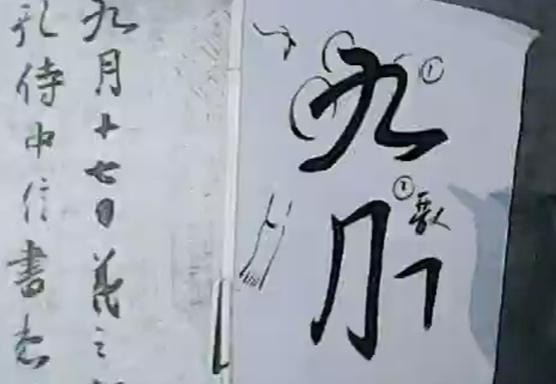 九①
月②
九月十七日羲之
孔侍中信書想